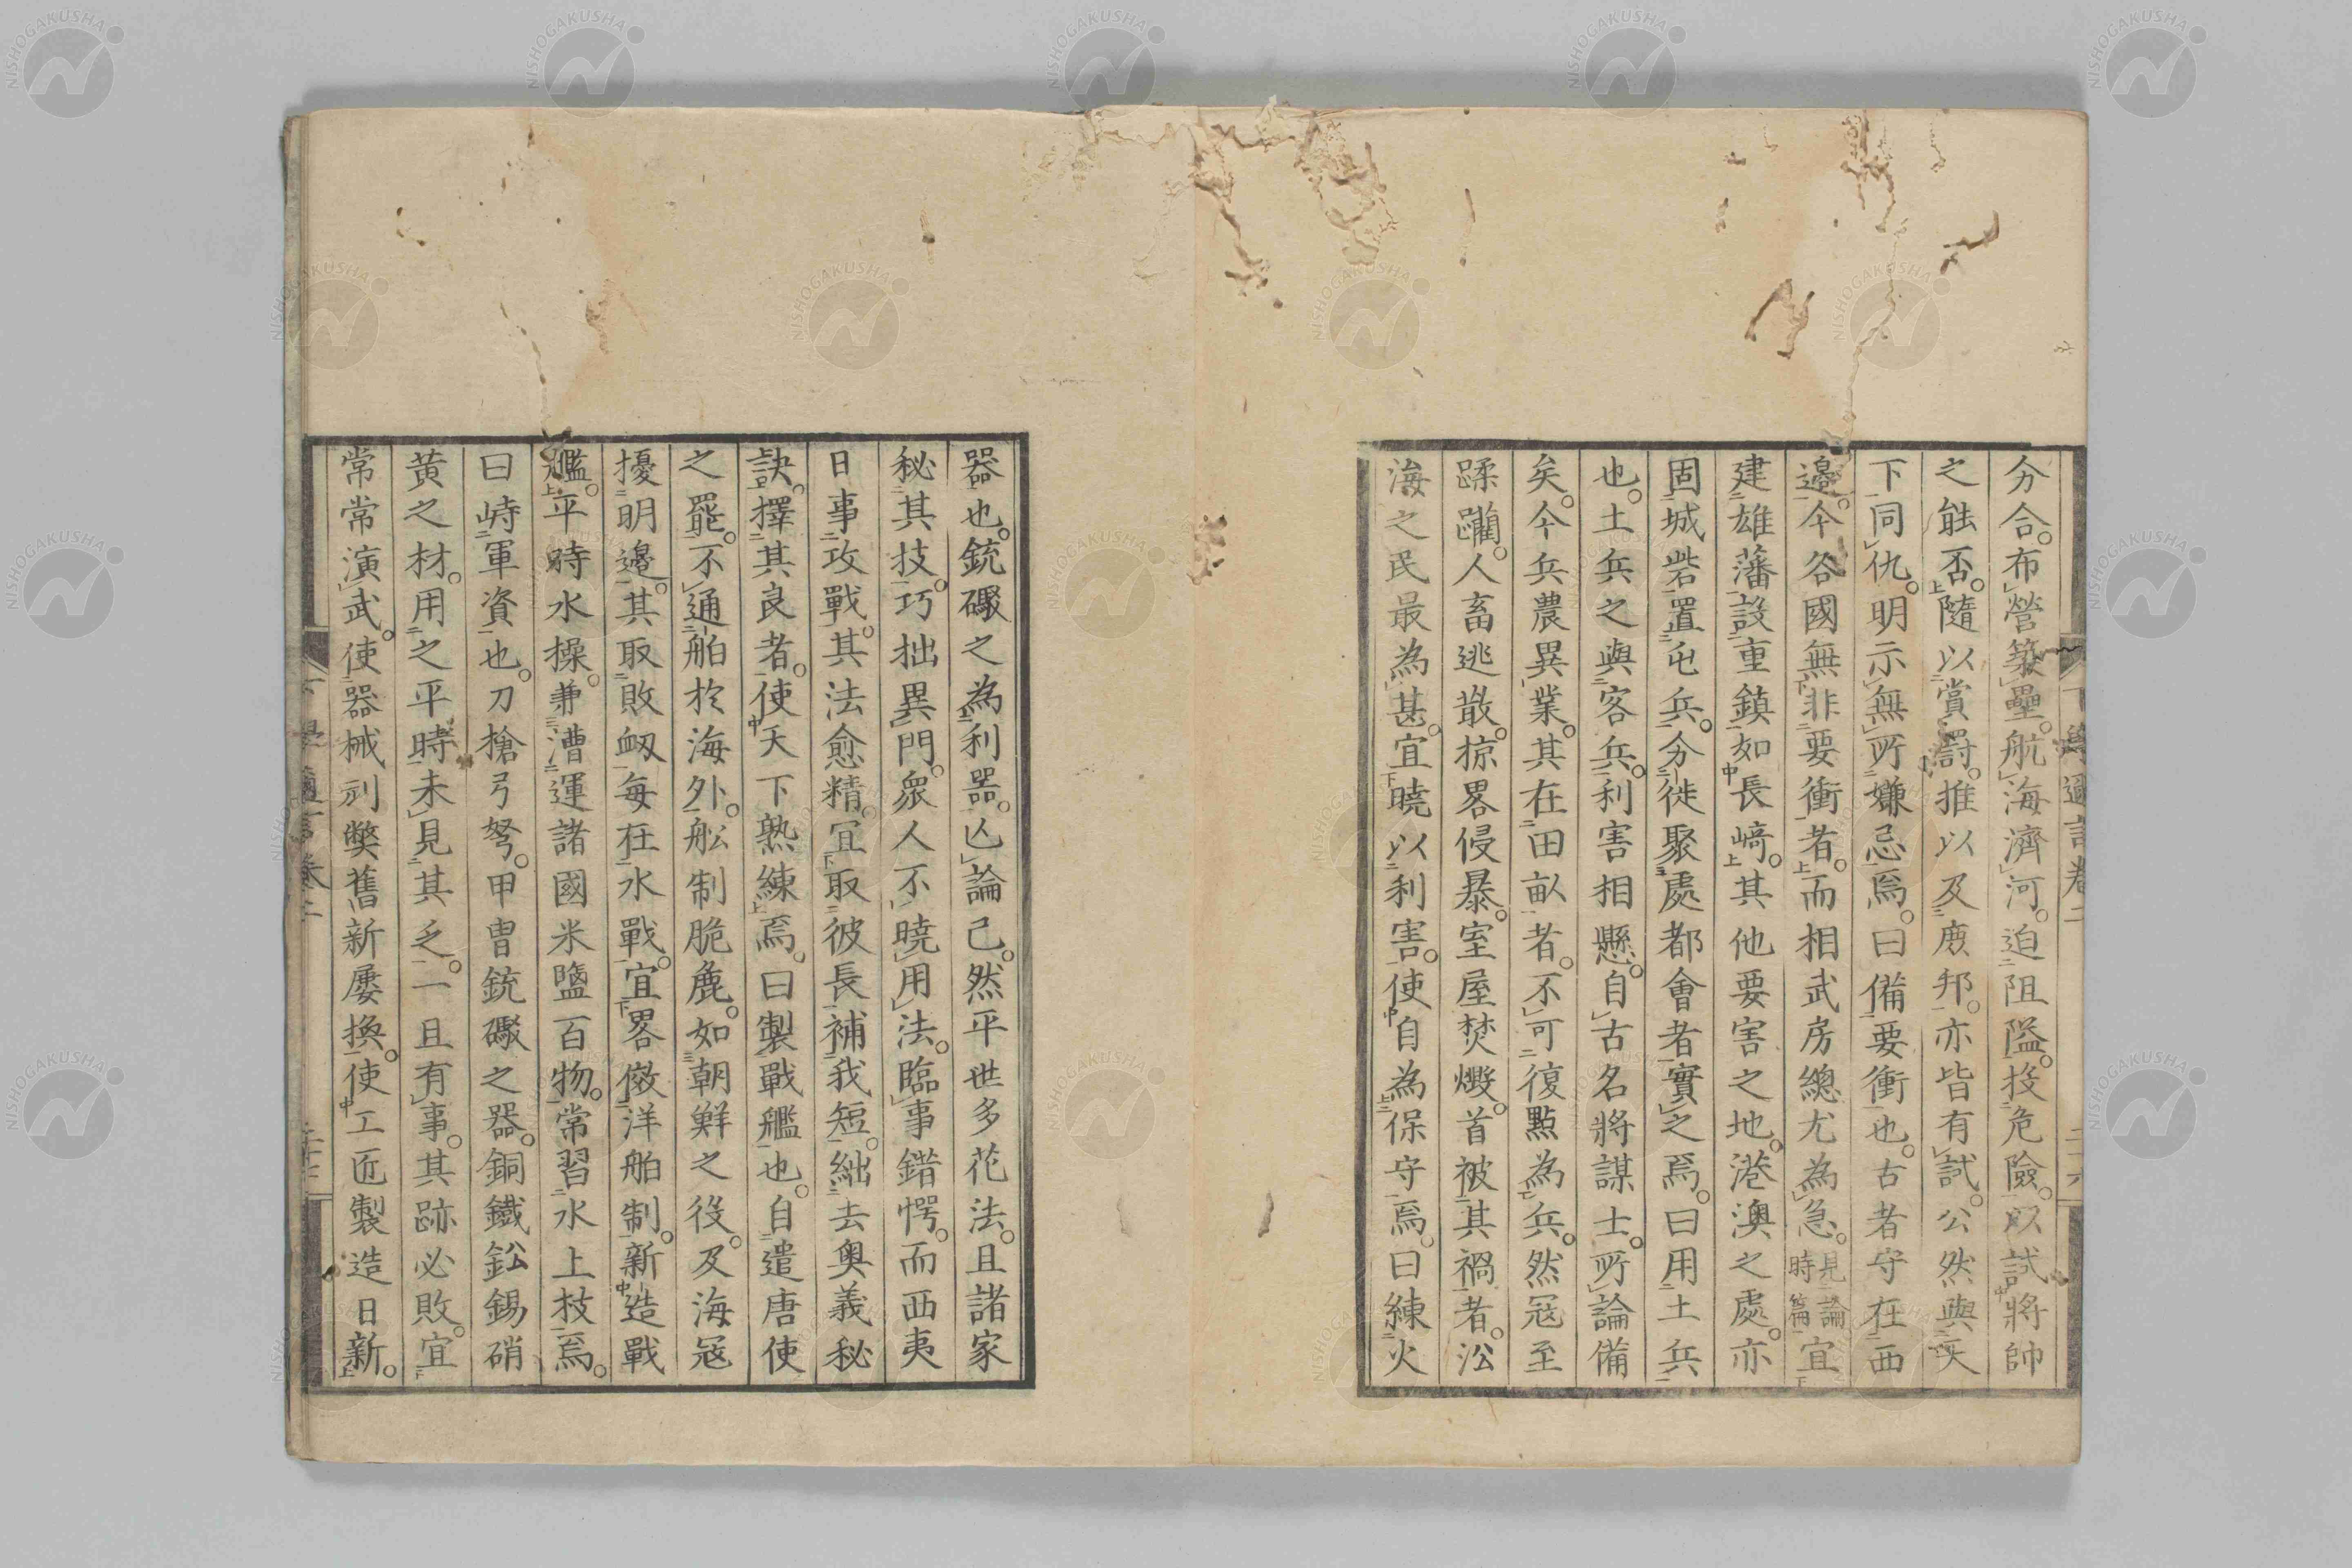 分合。布營築壘。航海濟河。迫阻隘。投危險。以試將帥
之能否。隨以賞罰。推以及庶邦。亦皆有試。公然與天
下同仇。明示無所嫌忌焉。曰備要衝也。古者守在西
邊。今各國無非要衝者。而相武房總尤為急。見時論篇宜
建雄藩設重鎮如長﨑。其他要害之地。港澳之處。亦
固城砦置屯兵。分徙聚處都會者實之焉。曰用土兵
也。土兵之與客兵。利害相懸。自古名將謀士。所論備
矣。今兵農異業。其在田畝者。不可復點為兵。然冦至
蹂躪。人畜逃散。掠畧侵暴。室屋焚燬。首被其禍者。㳂
海之民最為甚。宜曉以利害。使自為保守焉。曰練火
器也。銃礮之為利器。亡論已。然平世多花法。且諸家
秘其技。巧拙異門。衆人不曉用法。臨事錯愕。而西夷
日事攻戰。其法愈精。宜取彼長補我短。絀去奥義秘
訣。擇其良者。使天下熟練焉。曰製戰艦也。自遣唐使
之罷。不通舶於海外。舩制脆麁。如朝鮮之役。及海冦
擾明邊。其取敗衂每在水戰。宜畧倣洋舶制。新造戰
艦。平時水操。兼漕運諸國米鹽百物。常習水上技焉。
曰峙軍資也。刀槍弓弩。甲冑銃礮之器。銅鐵鈆錫硝
黄之材。用之平時未見其乏。一旦有事。其跡必敗。宜
常常演武。使器械刓弊舊新屢換。使工匠製造日新。
下學邇言卷二